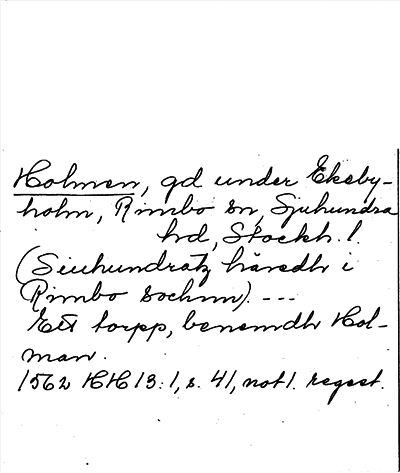 Holmen, gd under Ekeby-
holm, Rimbo sn, Sjuhundra
hd, Stockh. l.
(Siuhundratz häredh i
Rimbo sochnn). ---
Ett torpp, benemdh Hol-
man.
1562 HH 13:1, s. 41, not 1. regest.